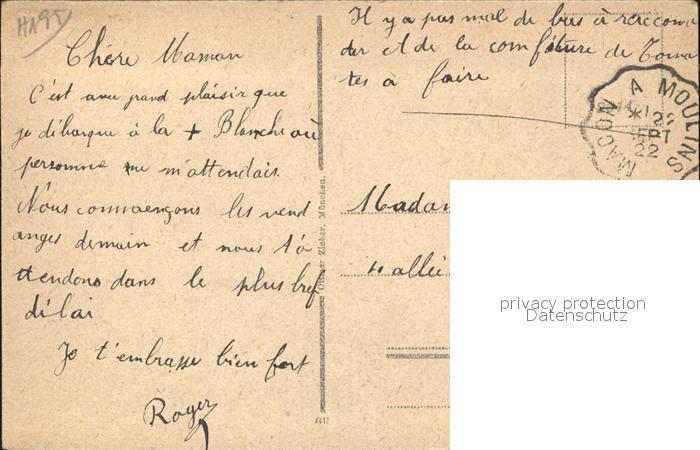 HA95
Chère Maman
C'est avec grand plaisir que
je débarque à la + Blanche où
personne ne m'attendais.
Nous commençons les vend
anges demain et nous t'a
ttendons dans le plus bref
délai
Je t'embrasse bien fort
Roger
Il y a pas mal de bas à raccomo
der et de la confiture de Toma
tes à faire
MACON A MOULINS
* 22
SEPT
22
Ottmar Zieher, München.
Madam
10 allée
privacy protection
Datenschutz